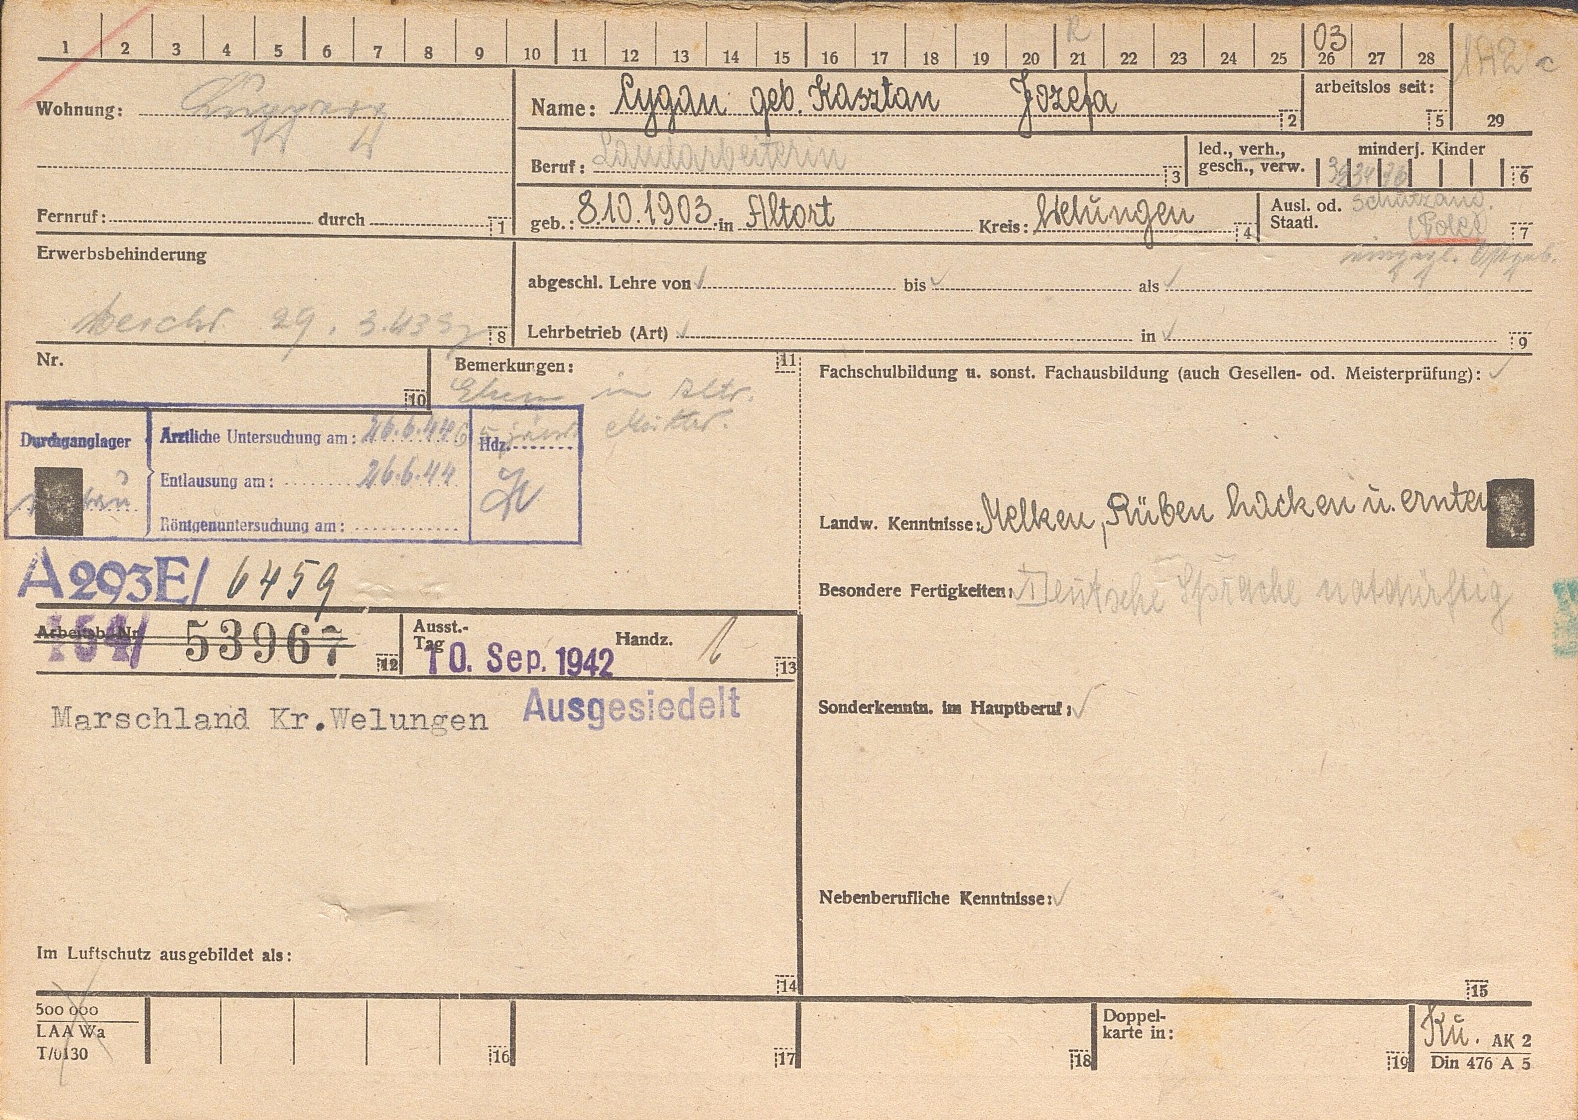 1 2 3 4 5 6 7 8 9 10 11 12 13 14 15 16 17 18 19 20 21 22 23 24 25 26 27 28
03
Wohnung:
Name: Cygan geb. Kasztan Jozefa 2
arbeitslos seit: 5 29
Beruf: Landarbeiterin 3
led., verh., gesch., verw.
minderj. Kinder
6
Fernruf: durch 1
geb.: 8.10.1903 in Altort Kreis: Welungen 4
Ausl. od. Staatl. Schutzang. (Pole) 7
eingegl. Ostgeb.
Erwerbsbehinderung
beschr. 29. 3.43 8
abgeschl. Lehre von bis als
Lehrbetrieb (Art) in 9
Nr. 10
Bemerkungen: 11
in Altr.
Mutter.
Fachschulbildung u. sonst. Fachausbildung (auch Gesellen- od. Meisterprüfung):
Durchganglager
Ärztliche Untersuchung am: 26.6.44
Entlausung am: 26.6.44
Röntgenuntersuchung am:
Hdz.
Landw. Kenntnisse: Melken, Rüben hacken u. ernten
A293E/ 6459
Besondere Fertigkeiten: Deutsche Sprache notdürftig
Arbeitsb. Nr.
164/ 53967 12
Ausst.-Tag 10. Sep. 1942 Handz. 13
Marschland Kr.Welungen Ausgesiedelt
Sonderkenntn. im Hauptberuf:
Nebenberufliche Kenntnisse:
Im Luftschutz ausgebildet als:
14
15
500 000
LAA Wa
T/0130
16 17 18
Doppel-
karte in:
19
Kü. AK 2
Din 476 A 5